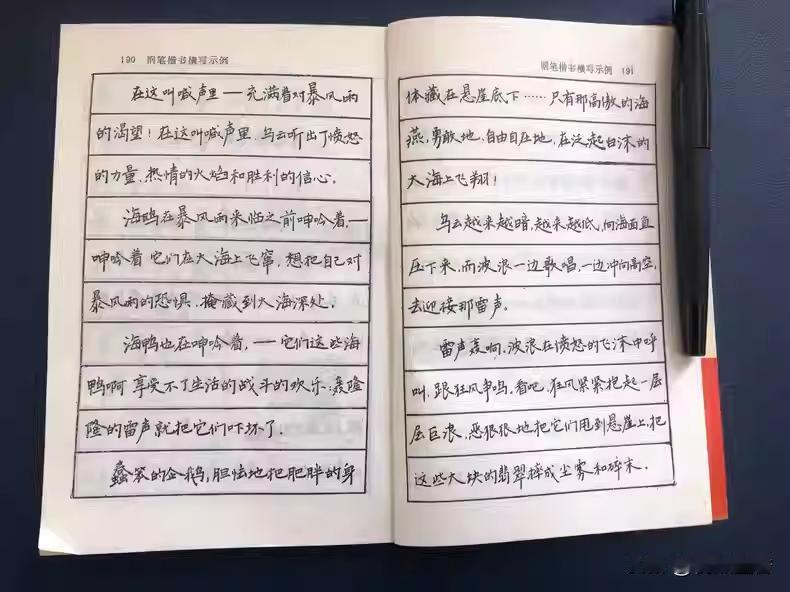 190 钢笔楷书横写示例
在这叫喊声里——充满着对暴风雨
的渴望！在这叫喊声里，乌云听出了愤怒
的力量、热情的火焰和胜利的信心。
海鸥在暴风雨来临之前呻吟着，—
呻吟着，它们在大海上飞窜，想把自己对
暴风雨的恐惧，掩藏到大海深处。
海鸭也在呻吟着，——它们这些海
鸭啊，享受不了生活的战斗的欢乐：轰隆
隆的雷声就把它们吓坏了。
蠢笨的企鹅，胆怯地把肥胖的身
钢笔楷书横写示例 191
体藏在悬崖底下……只有那高傲的海
燕，勇敢地，自由自在地，在泛起白沫的
大海上飞翔！
乌云越来越暗，越来越低，向海面直
压下来，而波浪一边歌唱，一边冲向高空，
去迎接那雷声。
雷声轰响。波浪在愤怒的飞沫中呼
叫，跟狂风争鸣。看吧，狂风紧紧抱起一层
层巨浪，恶狠狠地把它们甩到悬崖上，把
这些大块的翡翠摔成尘雾和碎末。